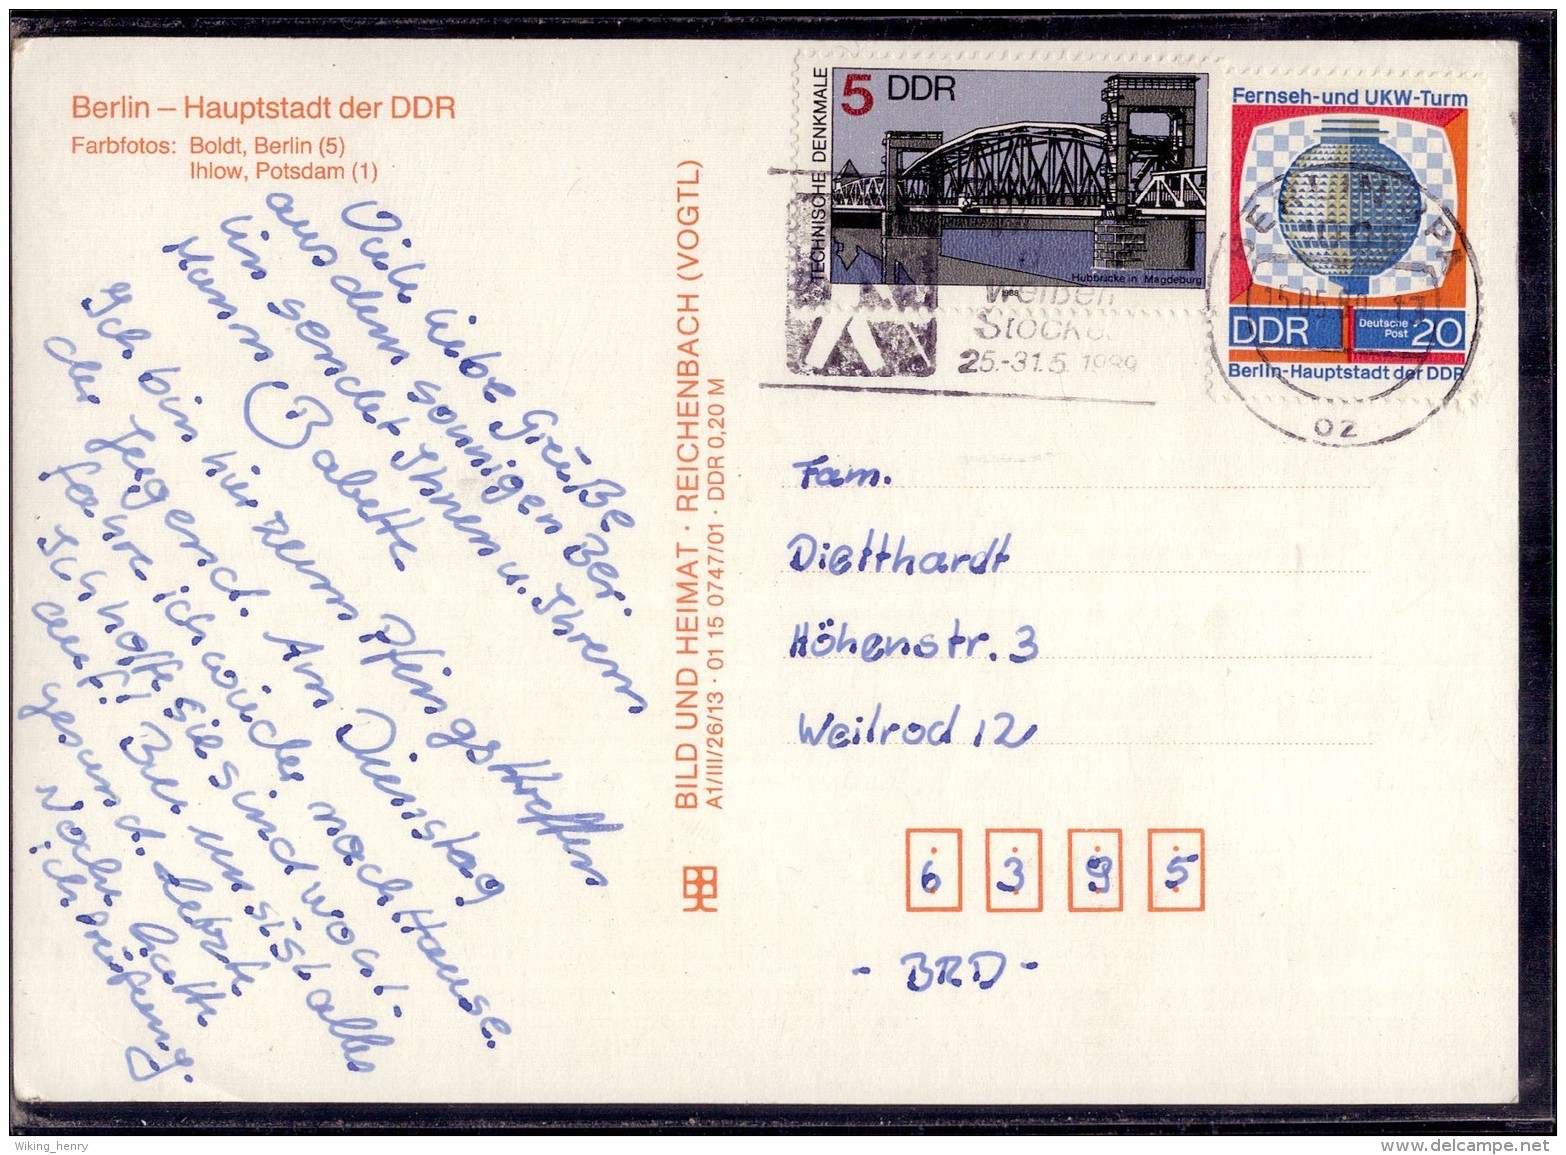 Berlin – Hauptstadt der DDR
Farbfotos: Boldt, Berlin (5)
Ihlow, Potsdam (1)
Viele liebe Grüße
aus dem sonnigen Ber-
lin sendet Ihnen u. Ihrem
Mann Babette
Ich bin hier zum Pfingsttreffen
der Jugend. Am Dienstag
fahre ich wieder nach Hause.
Ich hoffe sie sind wohl-
auf! Bei uns ist alles
gesund. Letzte
Woche hatte
ich Prüfung.
BILD UND HEIMAT · REICHENBACH (VOGTL)
A1/III/26/13 · 01 15 0747/01 · DDR 0,20 M
TECHNISCHE DENKMALE
5 DDR
Hubbrücke in Magdeburg
1988
Fernseh-und UKW-Turm
DDR Deutsche Post 20
Berlin-Hauptstadt der DDR
Weißen
Stocke
25.-31.5. 1989
oz
Fam.
Dietthardt
Höhenstr. 3
Weilrod 12
6 3 9 5
- BRD -
Wiking_henry
www.delcampe.net